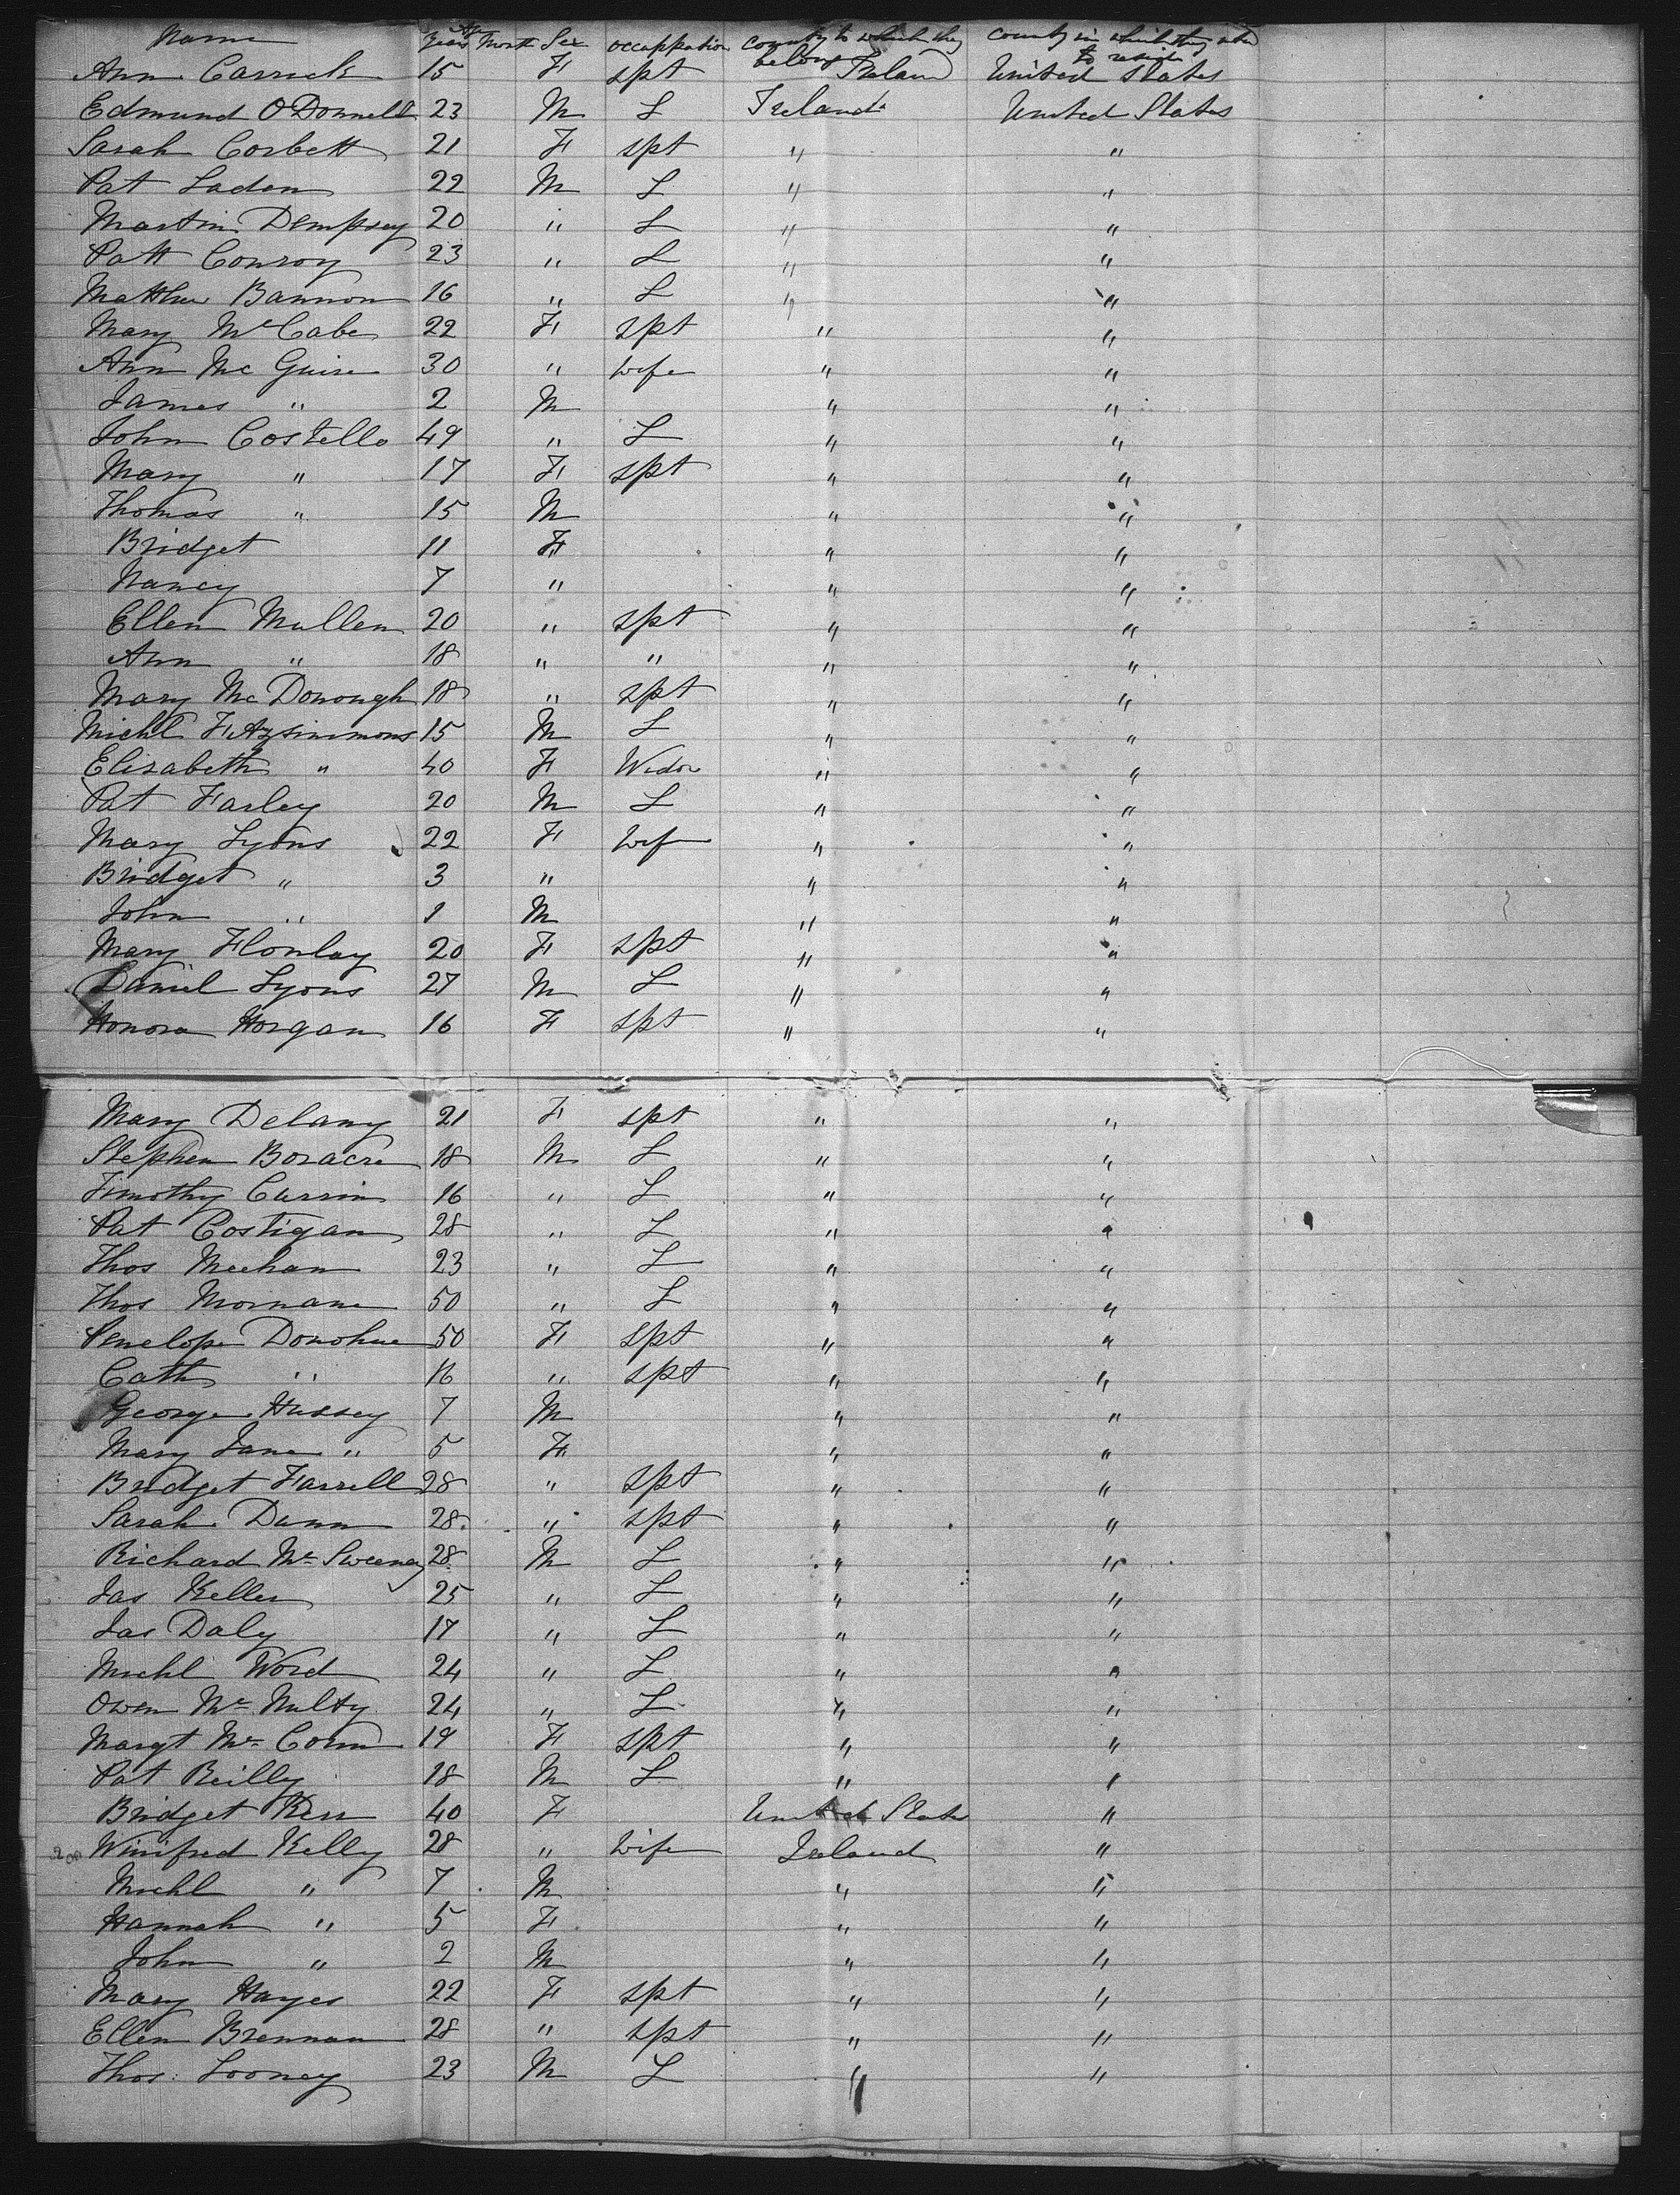 Name Age Years Month Sex occappation country to which they belong country in which they intend to reside
Ann Carrick 15 F spt Ireland United States
Edmund O'Donnell 23 M L Ireland United States
Sarah Corbett 21 F spt " "
Pat Laden 22 M L " "
Martin Dempsey 20 " L " "
Patt Conroy 23 " L " "
Matthew Bannon 16 " L " "
Mary McCabe 22 F spt " "
Ann Mc Guire 30 " wife " "
James " 2 M " "
John Costello 49 " L " "
Mary " 17 F spt " "
Thomas " 15 M " "
Bridget 11 F " "
Nancy 7 " " "
Ellen Mullen 20 " spt " "
Ann " 18 " " " "
Mary Mc Donough 18 " spt " "
Michl Fitzsimmons 15 M L " "
Elizabeth " 40 F Widow " "
Pat Farley 20 M L " "
Mary Lyons 22 F wife " "
Bridget " 3 " " "
John " 1 M " "
Mary 20 F spt " "
Daniel Lyons 27 M L " "
Honora Horgan 16 F spt " "
Mary Delany 21 F spt " "
Stephen 18 M L " "
Timothy Currin 16 " L " "
Pat Costigan 28 " L " "
Thos Meehan 23 " L " "
Thos Mornane 50 " L " "
Penelope Donohue 50 F spt " "
Cath " 16 " spt " "
George Hussey 7 M " "
Mary Jane " 5 F " "
Bridget Farrell 28 " spt " "
Sarah Dunn 28 " spt " "
Richard Mc Sweeney 28 M L " "
Jas Keller 25 " L " "
Jas Daly 17 " L " "
Michl Ward 24 " L " "
Owen Mc Nulty 24 " L " "
Margt Mc Conn 19 F spt " "
Pat Reilly 18 M L " "
Bridget Kerr 40 F United States "
Winifred Kelly 28 " Wife Ireland "
Michl " 7 M " "
Hannah " 5 F " "
John " 2 M " "
Mary Hayes 22 F spt " "
Ellen Brennan 28 " spt " "
Thos: Looney 23 M L " "